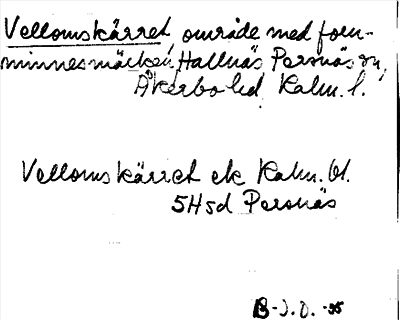 Vellomskärret, område med forn-
minnesmärken, Hallnäs Persnäs sn,
Åkerbo hd. Kalm. l.
Vellomskärret ek Kalm. bl.
5H5d Persnäs
B-J.O. -55